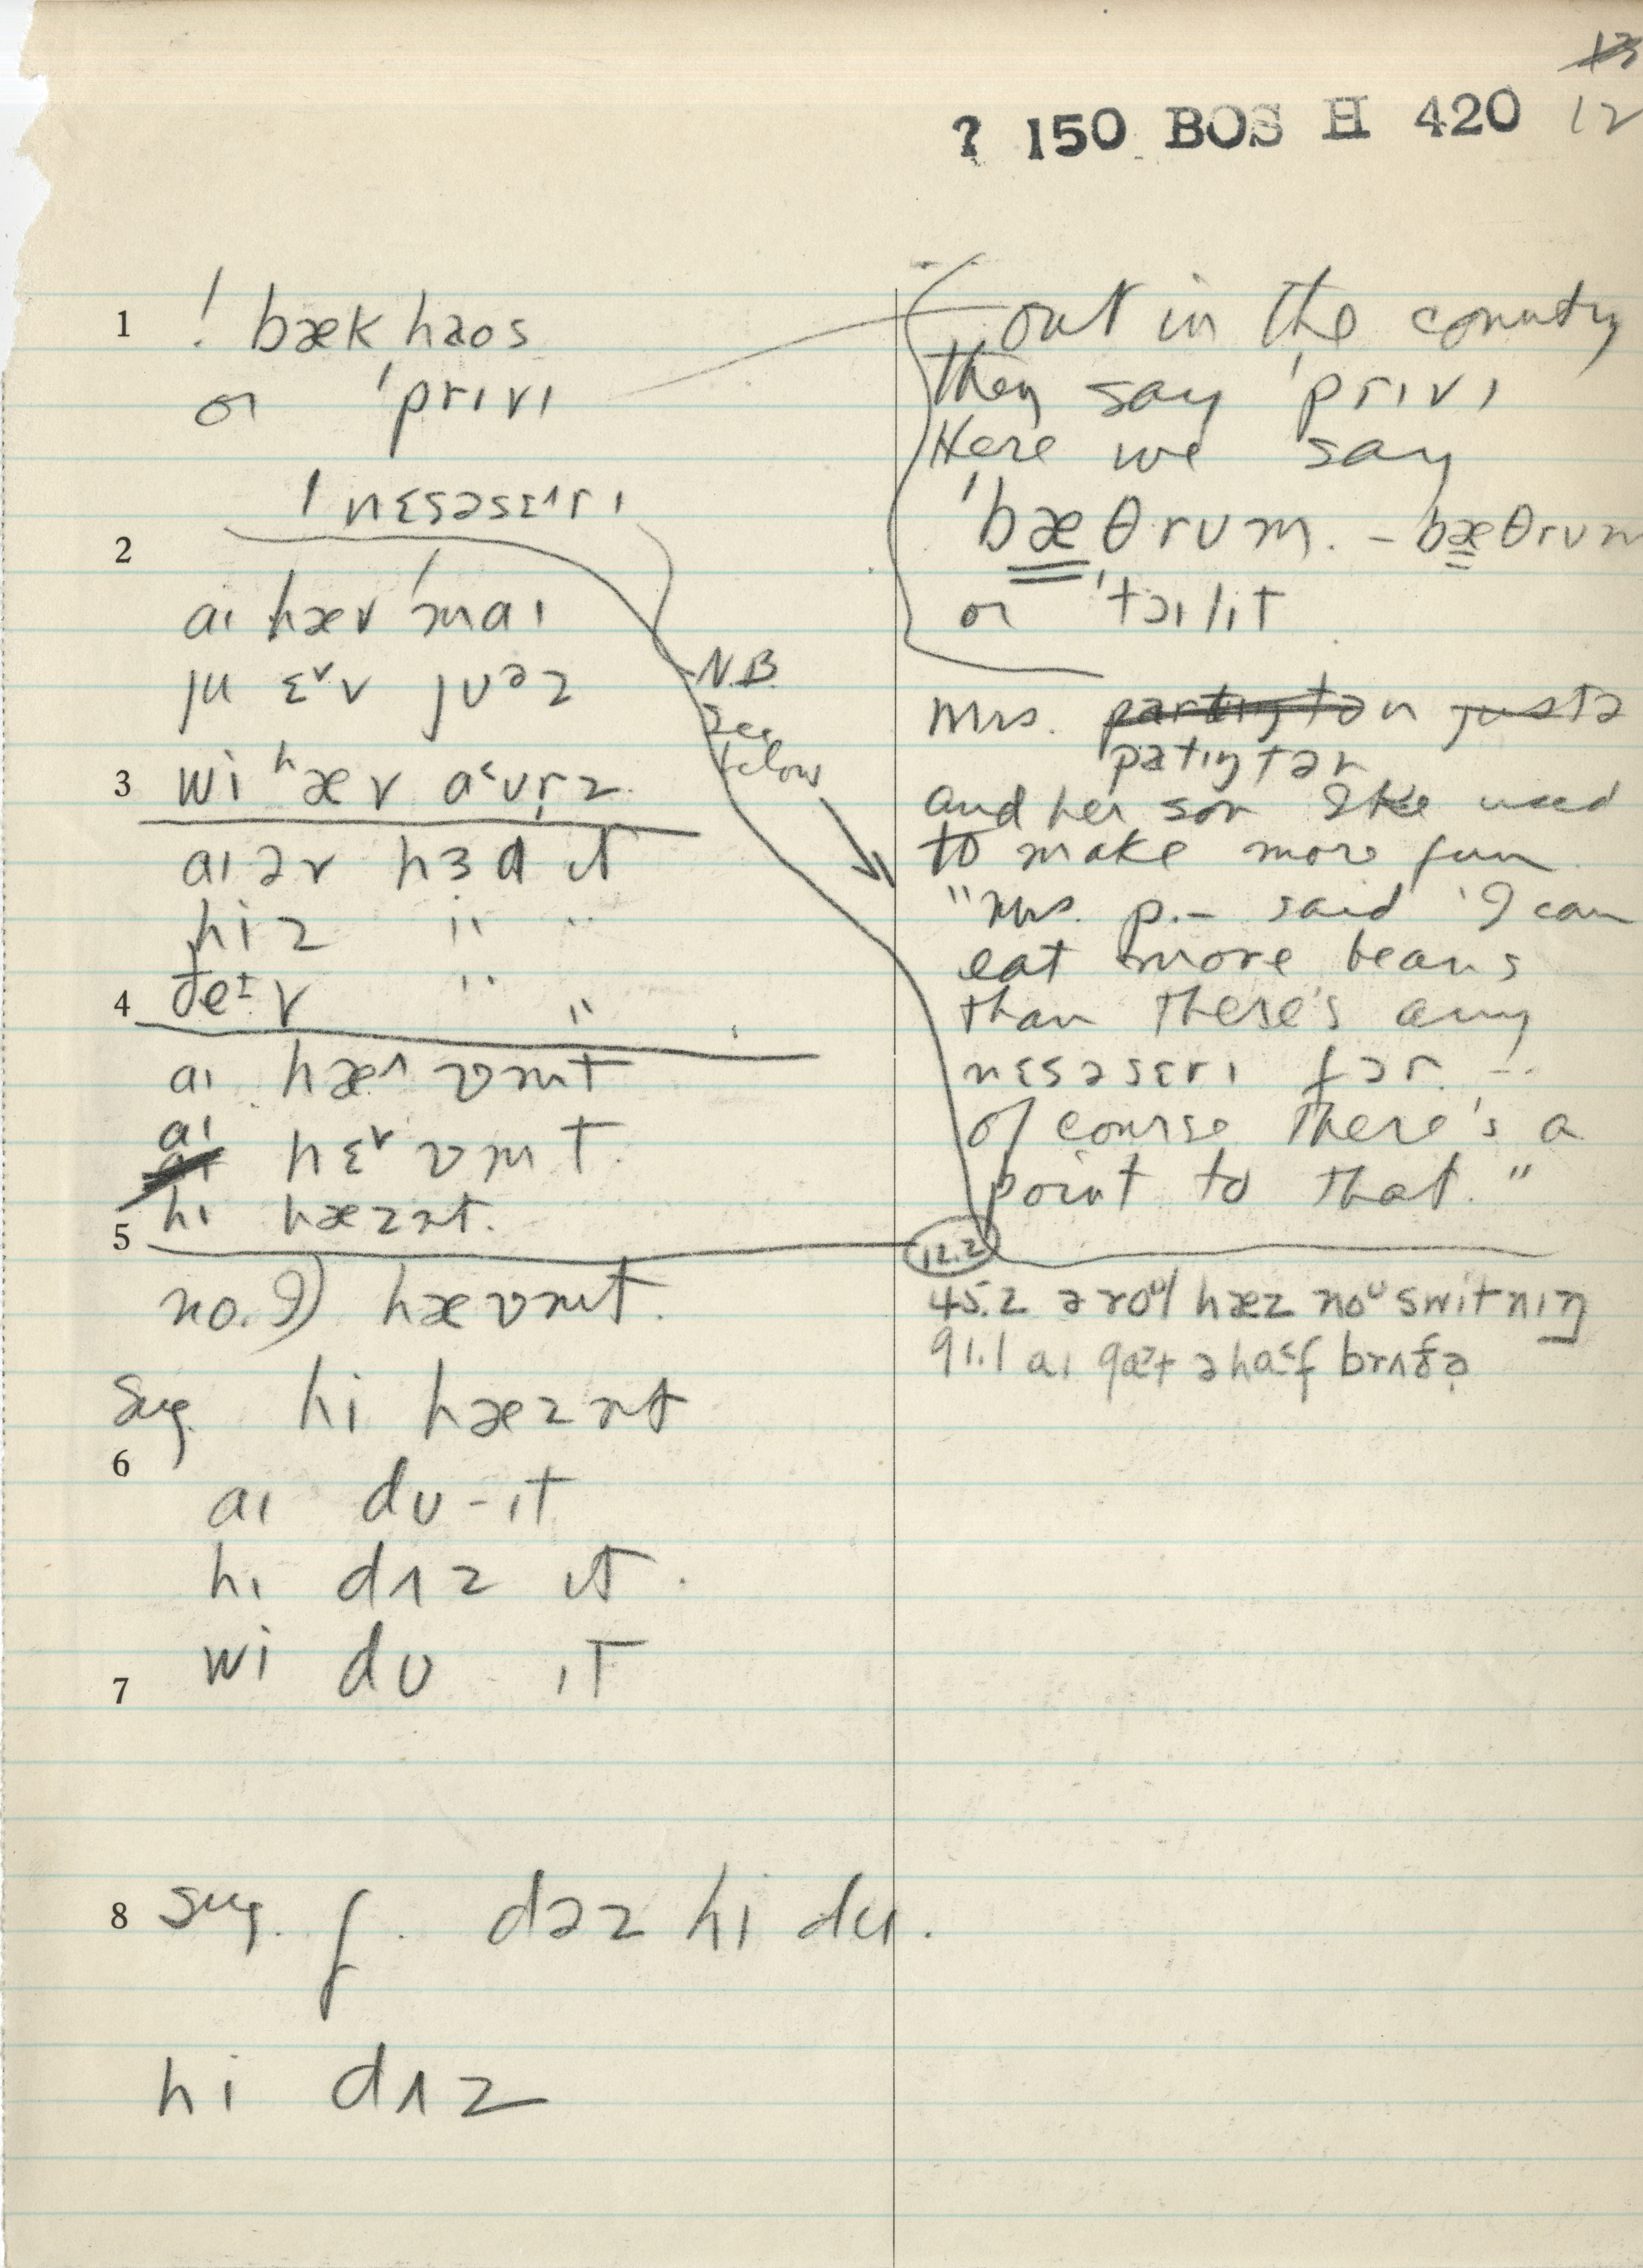 13
12
? 150 BOS H 420
1 ! bæk haos
or 'prɪvɪ
'nɛsəsɛ^rɪ
2
aɪ hæv 'maɪ
ju ɛᵛv jʊᵊz
3 wi ʰæv aʊr̩z
aɪ əv hɜd ɪt
hiz " "
4 ðeɪv " "
aɪ hæ^ vm̩t
aɪ hɛᵛ vm̩t.
hɪ hæzn̩t.
5
no. I) hævm̩t.
Sug. hi hæzn̩t
6
aɪ dʊ-ɪt
hɪ dʌz ɪt.
wi dʊ ɪt
7
8 sug. f. dəz hi du.
hi dʌz
N.B.
See
below
out in the country
they say 'prɪvɪ
Here we say
'bæθrʊm. - bæθrʊm
or 'tɔɪlɪt
Mrs. partington justə
patɪŋtən
and her son Ike used
to make more fun
"Mrs. P.- said 'I can
eat more beans
than there's any
nɛsəsɛrɪ fər. --
of course there's a
point to that."
12.2
45.2 ə roᵘl hæz noᵘ switnɪŋ
91.1 aɪ gat ə haf brʌðə